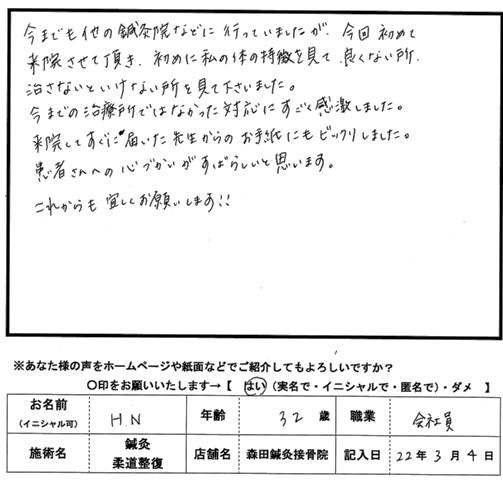 今までも他の鍼灸院などに行っていましたが、今回初めて
来院させて頂き、初めに私の体の特徴を見て、良くない所、
治さないといけない所を見て下さいました。
今までの治療所ではなかった対応にすごく感激しました。
来院してすぐに届いた先生からのお手紙にもビックリしました。
患者さんへの心づかいがすばらしいと思います。
これからも宜しくお願いします!!
※あなた様の声をホームページや紙面などでご紹介してもよろしいですか？
〇印をお願いいたします→【 はい（実名で・イニシャルで・匿名で）・ダメ 】
お名前 （イニシャル可） H N 年齢 32 歳 職業 会社員
施術名 鍼灸 柔道整復 店舗名 森田鍼灸接骨院 記入日 22年 3月 4日